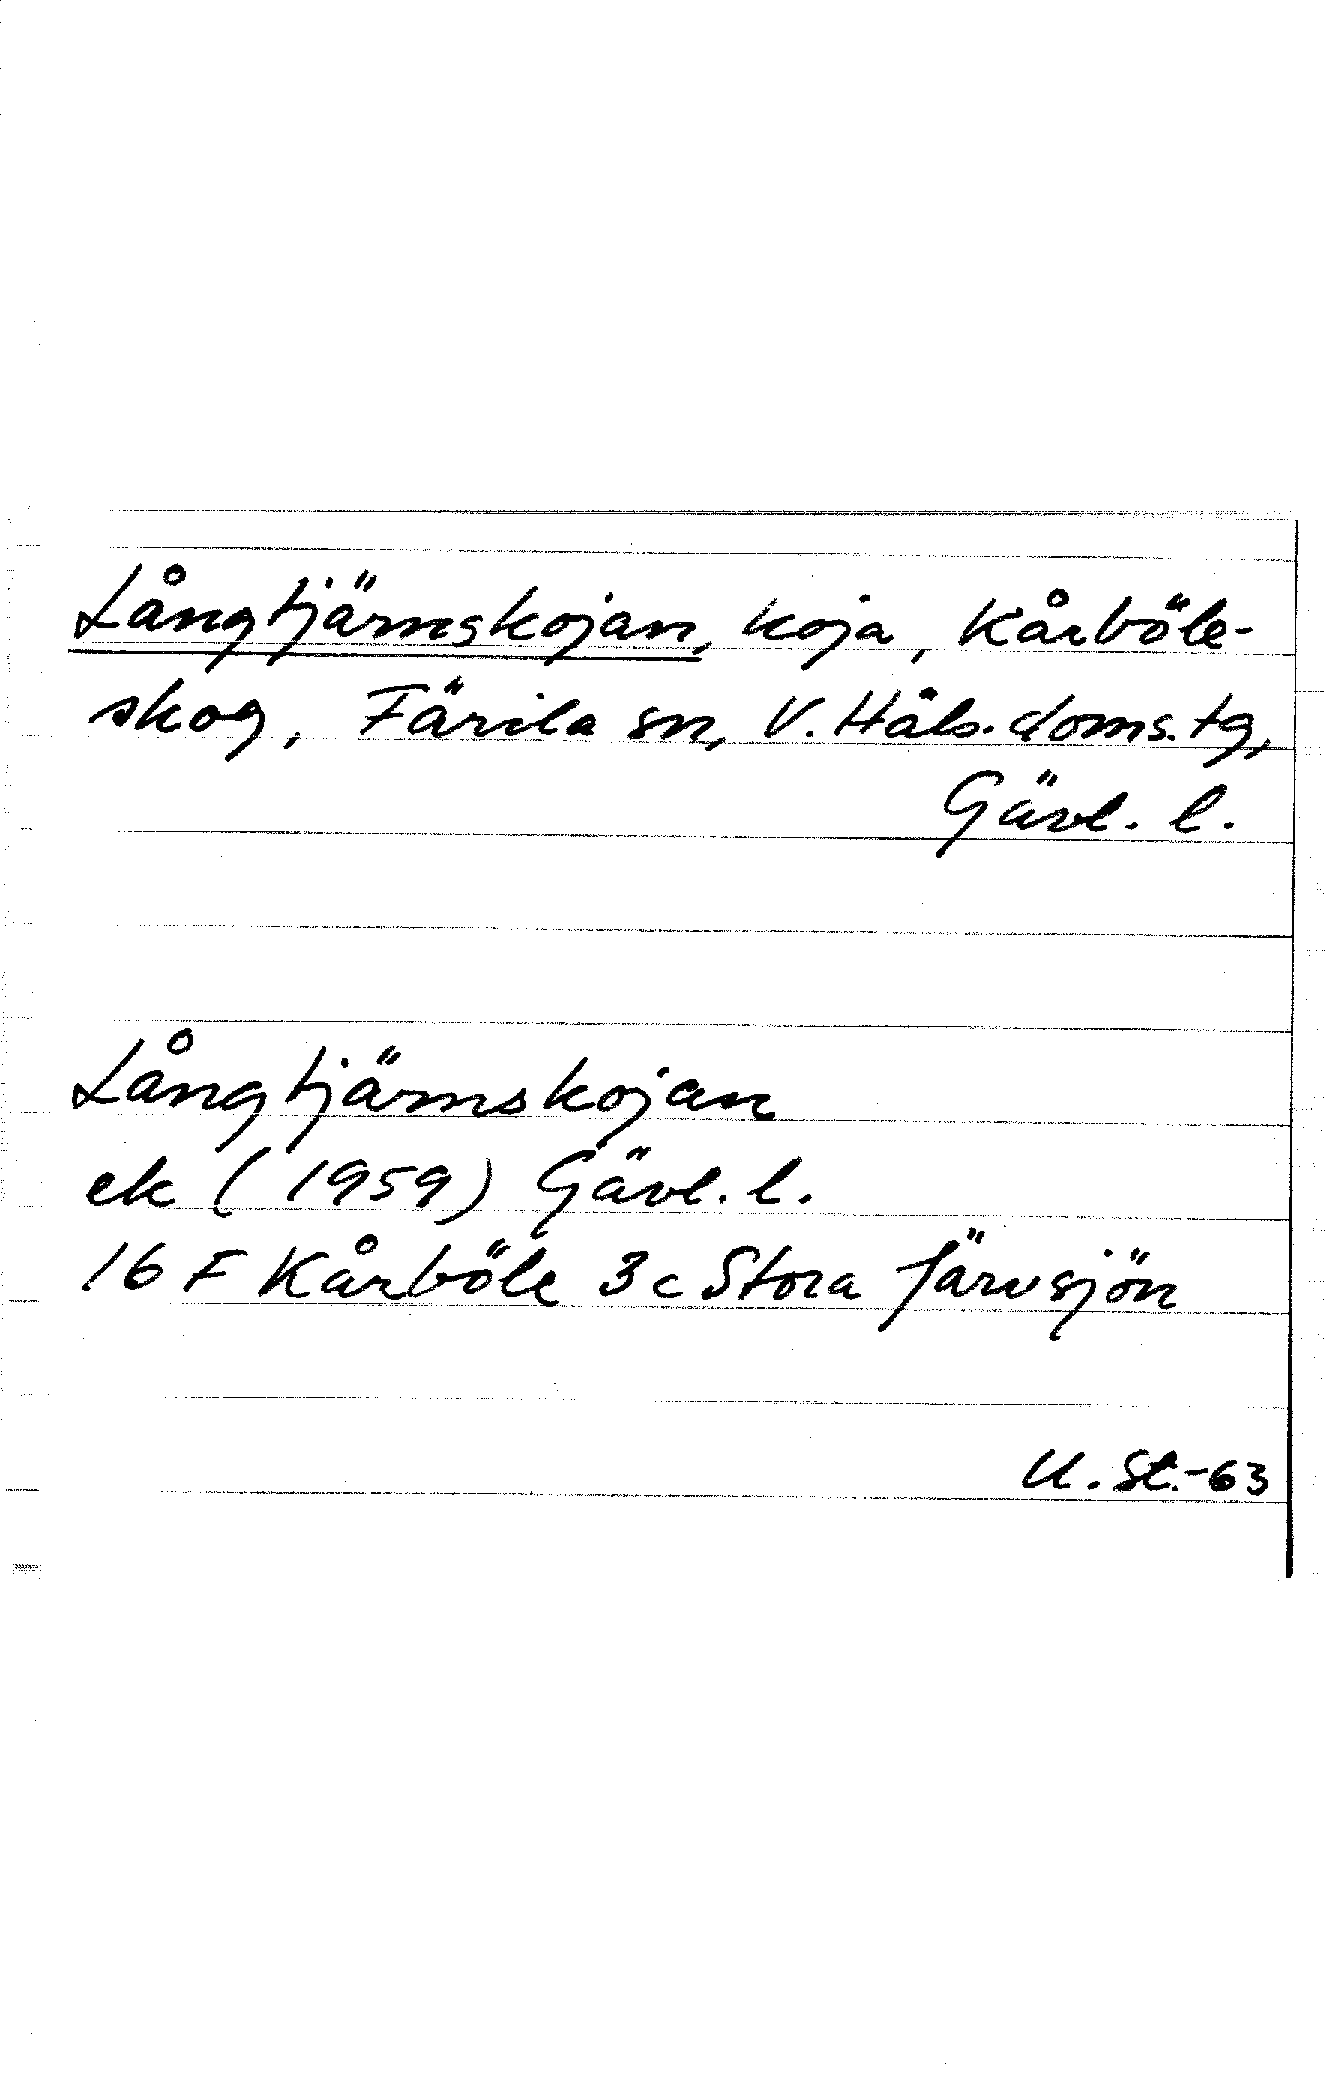 Långtjärnskojan, koja, Kårböle-
skog, Färila sn, V. Häls. doms. tg,
Gävl. l.
Långtjärnskojan
ek (1959) Gävl. l.
16 F Kårböle 3c Stora Järvsjön
U. St.-63